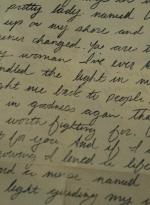 pretty lady named
up on my shore and
never changed. You are t
y woman I've ever k
ndled the light in m
ght me back to people
in goodness again, tha
worth fighting for.
ly for you. And if I
I loved is life
named
light guiding my